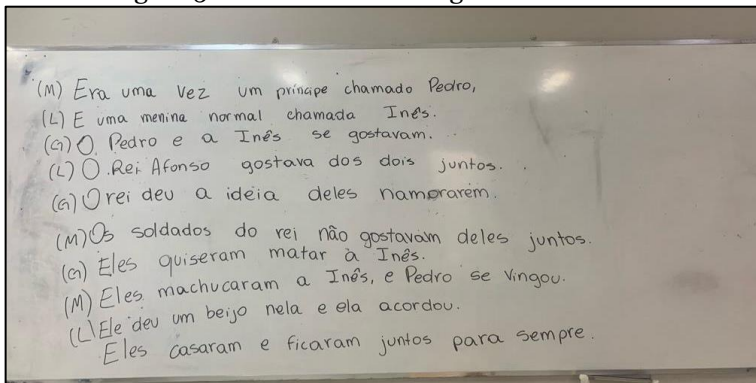 (M) Era uma vez um príncipe chamado Pedro,
(L) E uma menina normal chamada Inês.
(G) O. Pedro e a Inês se gostavam.
(L) O. Rei Afonso gostava dos dois juntos.
(G) O rei deu a ideia deles namorarem.
(M) Os soldados do rei não gostavam deles juntos.
(G) Eles quiseram matar a Inês.
(M) Eles machucaram a Inês, e Pedro se vingou.
(L) Ele deu um beijo nela e ela acordou.
Eles casaram e ficaram juntos para sempre.